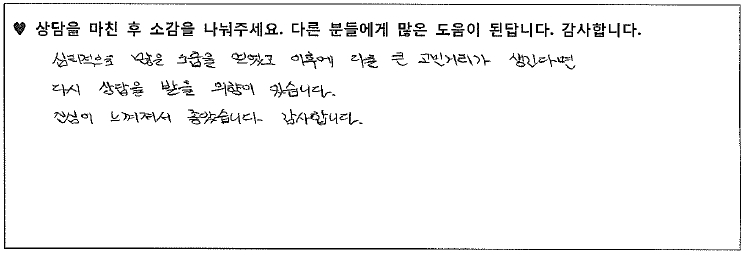 ♥ 상담을 마친 후 소감을 나눠주세요. 다른 분들에게 많은 도움이 된답니다. 감사합니다.
심리적으로 많은 도움을 얻었고 이후에 다른 큰 고민거리가 생긴다면
다시 상담을 받을 의향이 있습니다.
진심이 느껴져서 좋았습니다. 감사합니다.